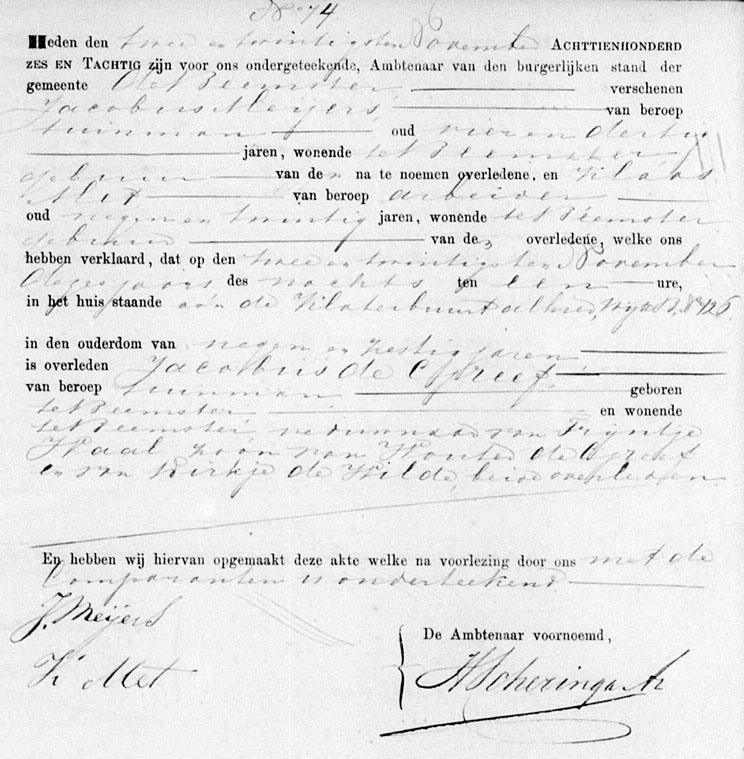 No 74
Heden den twee en twintigsten November ACHTTIENHONDERD
ZES EN TACHTIG zijn voor ons ondergeteekende, Ambtenaar van den burgerlijken stand der
gemeente De Beemster verschenen
Jacobus Meijers van beroep
tuinman oud vier en dertig
jaren, wonende te Beemster
gebuur van de n na te noemen overledene, en Klaas
Met van beroep arbeider
oud negen en twintig jaren, wonende te Beemster
gebuur van de n overledene, welke ons
hebben verklaard, dat op den twee en twintigsten November
dezes jaars des nachts ten een ure,
in het huis staande aan de Klaterbuurt alhier, wijk B. No 126
in den ouderdom van negen en zestig jaren
is overleden Jacobus de Greef,
van beroep tuinman geboren
te Beemster en wonende
te Beemster, weduwnaar van Trijntje
Waal zoon van Wouter de Greef
en van Dirkje de Wilde, beide overleden
En hebben wij hiervan opgemaakt deze akte welke na voorlezing door ons met de
Comparanten is onderteekend.
J. Meijers
K Met
De Ambtenaar voornoemd,
H Scheringa Az